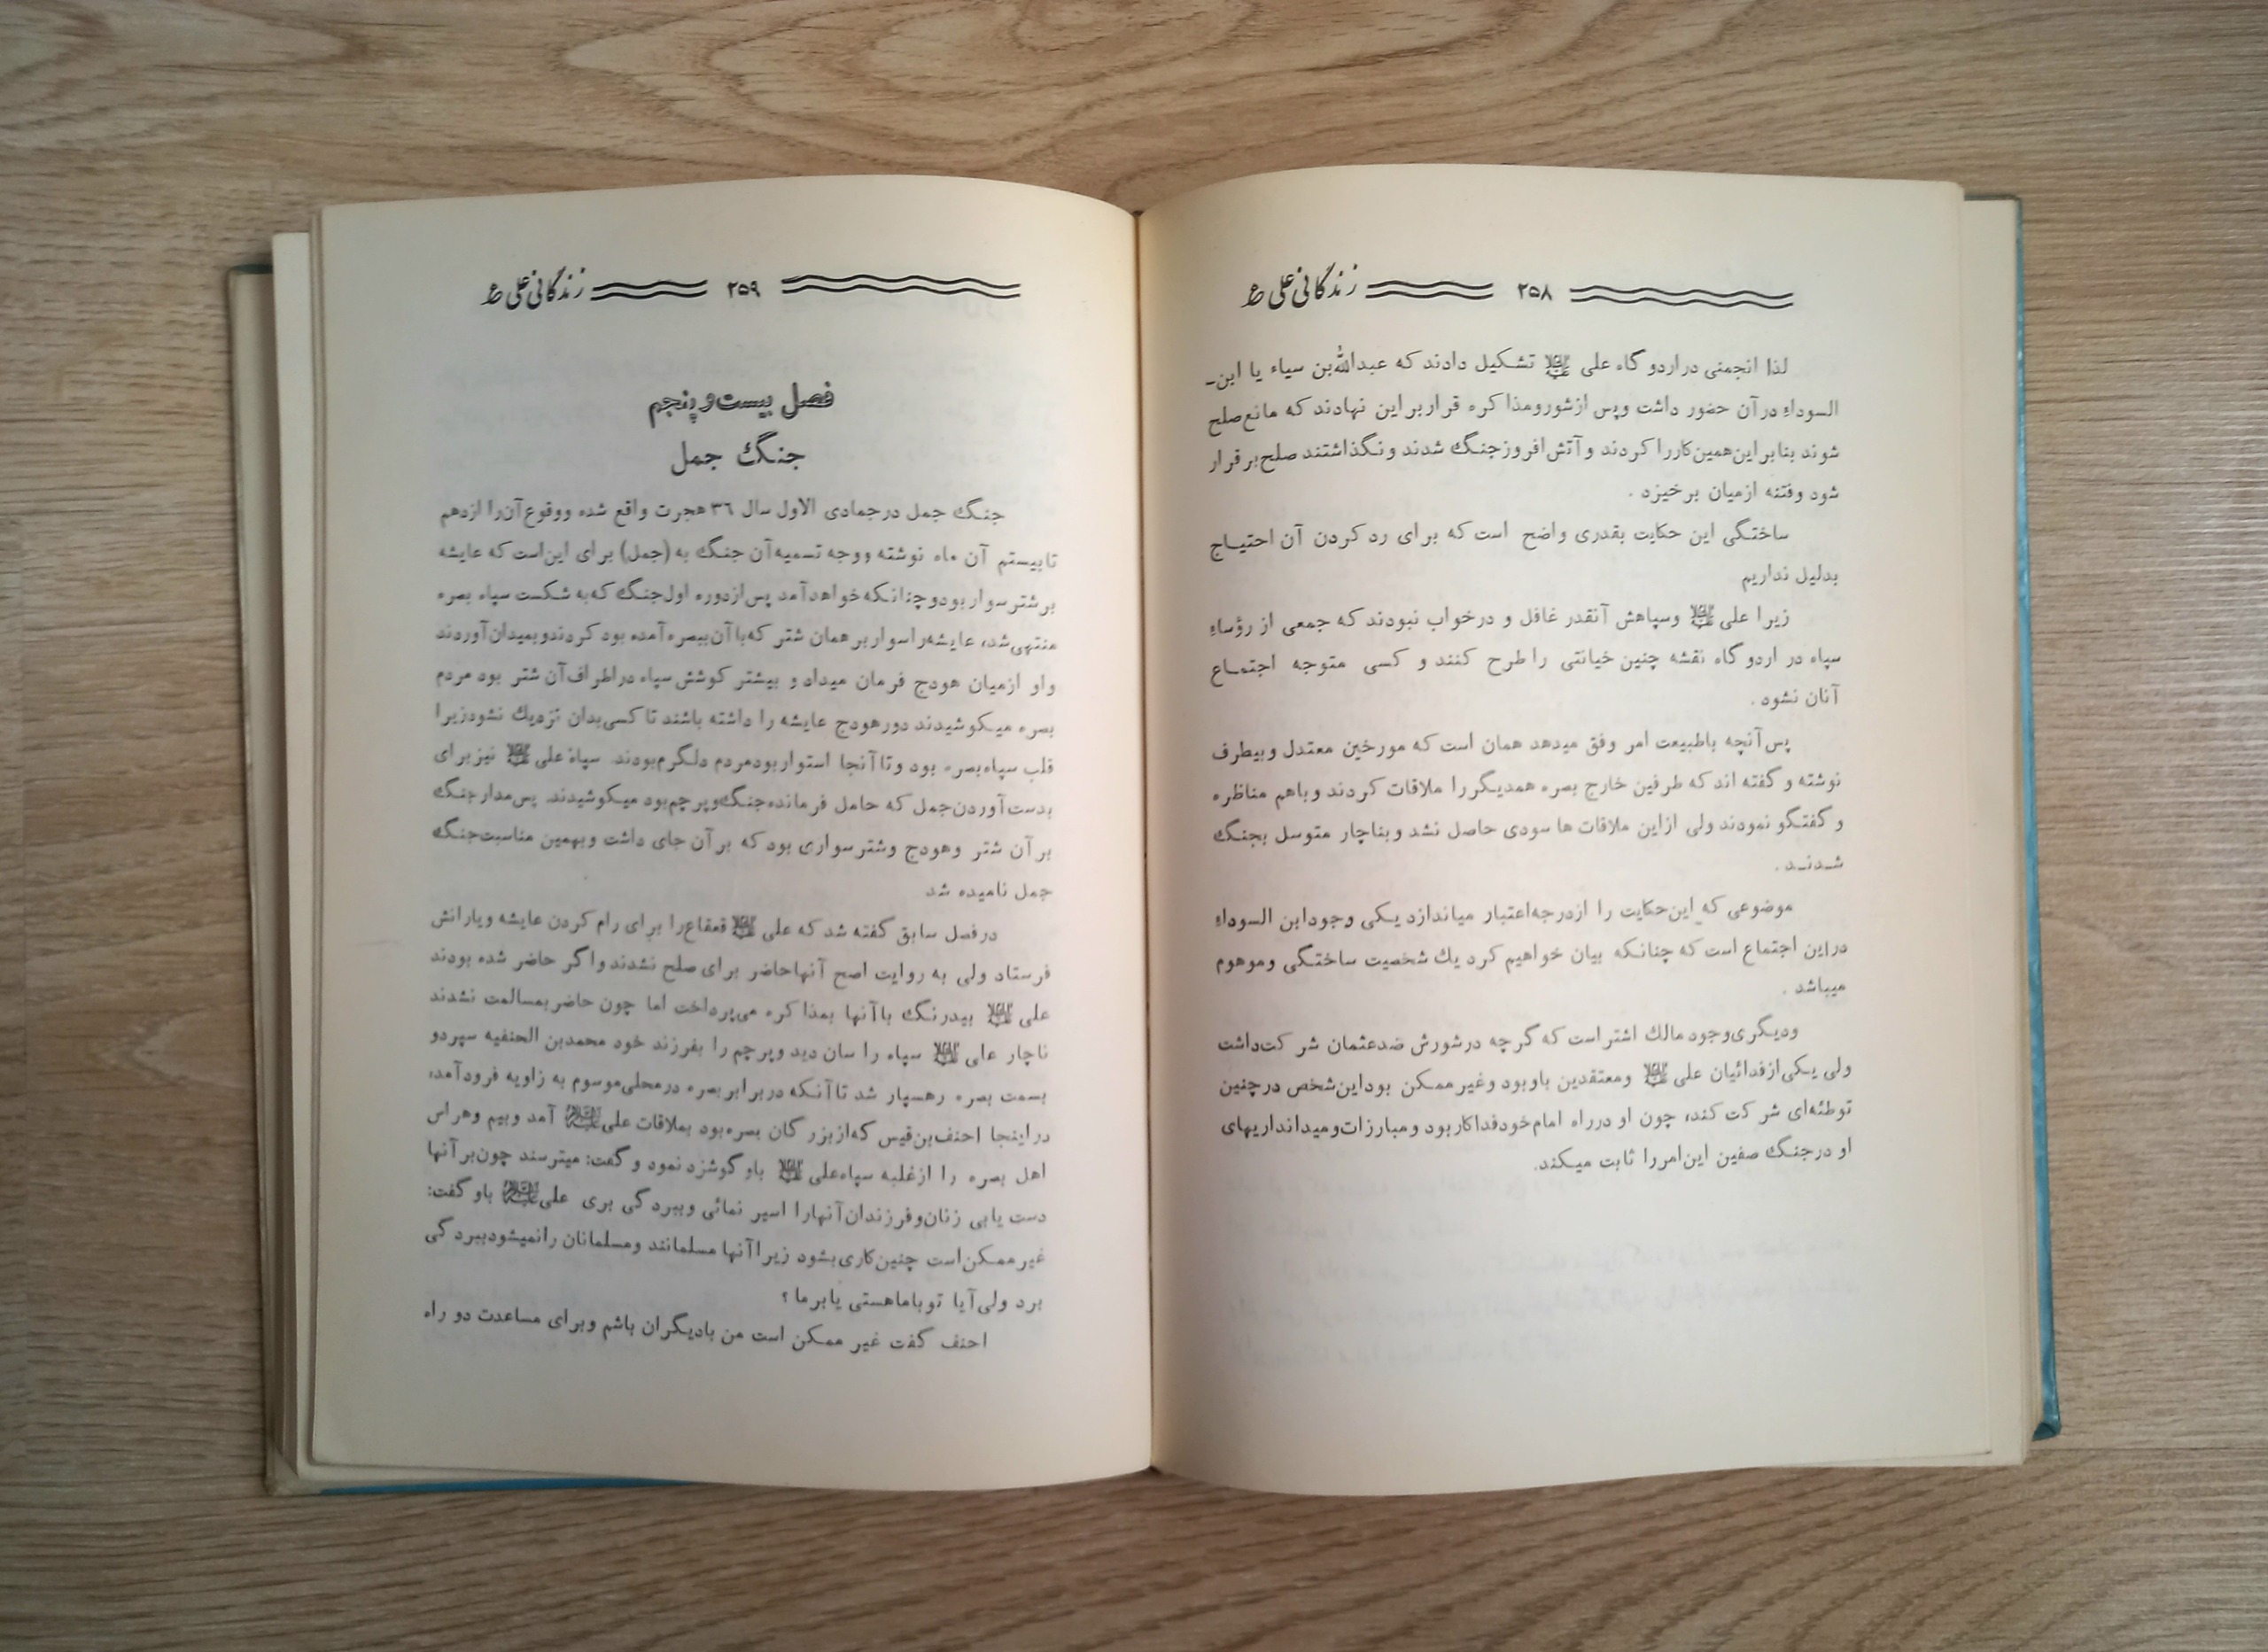 ۲۵۸ زندگانی علی ع
لذا انجمنی در اردو گاه علی علیه‌السلام تشکیل دادند که عبدالله‌بن سیاء یا ابن-
السوداء در آن حضور داشت وپس ازشورومذا کره قراربر این نهادند که مانع صلح
شوند بنابر این‌همین‌کاررا کردند و آتش‌افروزجنگ شدند و نگذاشتند صلح‌بر قرار
شود وفتنه ازمیان برخیزد .
ساختگی این حکایت بقدری واضح است که برای رد کردن آن احتیاج
بدلیل نداریم
زیرا علی علیه‌السلام وسپاهش آنقدر غافل و درخواب نبودند که جمعی از رؤساء
سپاه در اردو گاه نقشه چنین خیانتی را طرح کنند و کسی متوجه اجتماع
آنان نشود .
پس آنچه باطبیعت امر وفق میدهد همان است که مورخین معتدل وبیطرف
نوشته و گفته اند که طرفین خارج بصره همدیگررا ملاقات کردند وباهم مناظره
و گفتگو نمودند ولی ازاین ملاقات ها سودی حاصل نشد وبناچار متوسل بجنگ
شدند .
موضوعی که این‌حکایت را ازدرجه‌اعتبار میاندازد یکی وجودابن السوداء
دراین اجتماع است که چنانکه بیان خواهیم کرد یك شخصیت ساختگی وموهوم
میباشد .
ودیگری‌وجود مالك اشتراست که گرچه درشورش ضدعثمان شر کت‌داشت
ولی یکی‌ازفدائیان علی علیه‌السلام ومعتقدین باوبود وغیر ممکن بوداین‌شخص درچنین
توطئه‌ای شر کت کند، چون او درراه امام‌خودفداکاربود ومبارزات‌ومیدانداریهای
او درجنگ صفین این‌امررا ثابت میکند.
۲۵۹ زندگانی علی ع
فصل بیست‌و‌پنجم
جنگ جمل
جنگ جمل درجمادی الاول سال ۳٦ هجرت واقع شده ووقوع آن‌را ازدهم
تابیستم آن ماه نوشته ووجه تسمیه‌آن جنگ به (جمل) برای این‌است که عایشه
برشترسوار بودوچنانکه‌خواهدآمد پس‌ازدوره اول‌جنگ که‌به شکست سپاه بصره
منتهی‌شد، عایشه‌راسوار بر همان شتر که‌باآن‌ببصره آمده بود کردندوبمیدان‌آوردند
واو ازمیان هودج فرمان میداد و بیشتر کوشش سپاه دراطراف‌آن شتر بود مردم
بصره میکوشیدند دورهودج عایشه را داشته باشند تاکسی‌بدان نزدیك نشودزیرا
قلب سپاه‌بصره بود وتاآنجا استواربودمردم دلگرم‌بودند. سپاه علی علیه‌السلام نیزبرای
بدست‌آوردن‌جمل که حامل فرمانده‌جنگ‌وپر چم‌بود میکوشیدند. پس‌مدارجنگ
بر آن شتر وهودج وشترسواری بود که بر آن جای داشت وبهمین مناسبت‌جنگ
جمل نامیده شد
درفصل سابق گفته شد که علی علیه‌السلام قعقاع‌را برای رام کردن عایشه ویارانش
فرستاد ولی به روایت اصح آنهاحاضر برای صلح نشدند واگر حاضر شده بودند
علی علیه‌السلام بیدرنگ باآنها بمذا کره می‌پرداخت اما چون حاضر‌بمسالمت نشدند
ناچار علی علیه‌السلام سپاه را سان دید وپرچم را بفرزند خود محمدبن الحنفیه سپردو
بسمت بصره رهسپار شد تاآنکه دربرابربصره درمحلی‌موسوم به زاویه فرودآمد،
دراینجا احنف‌بن‌قیس که‌ازبزر گان بصره‌بود بملاقات علی علیه‌السلام آمد وبیم وهراس
اهل بصره را ازغلبه سپاه‌علی علیه‌السلام باو گوشزد نمود و گفت: میترسند چون‌بر آنها
دست یابی زنان‌وفرزندان‌آنهارا اسیر نمائی وببرد گی بری علی علیه‌السلام باو گفت:
غیر ممکن‌است چنین‌کاری‌بشود زیراآنها مسلمانند ومسلمانان رانمیشودببرد گی
برد ولی‌آیا توباماهستی یابرما ؟
احنف گفت غیر ممکن است من بادیگران باشم وبرای مساعدت دو راه